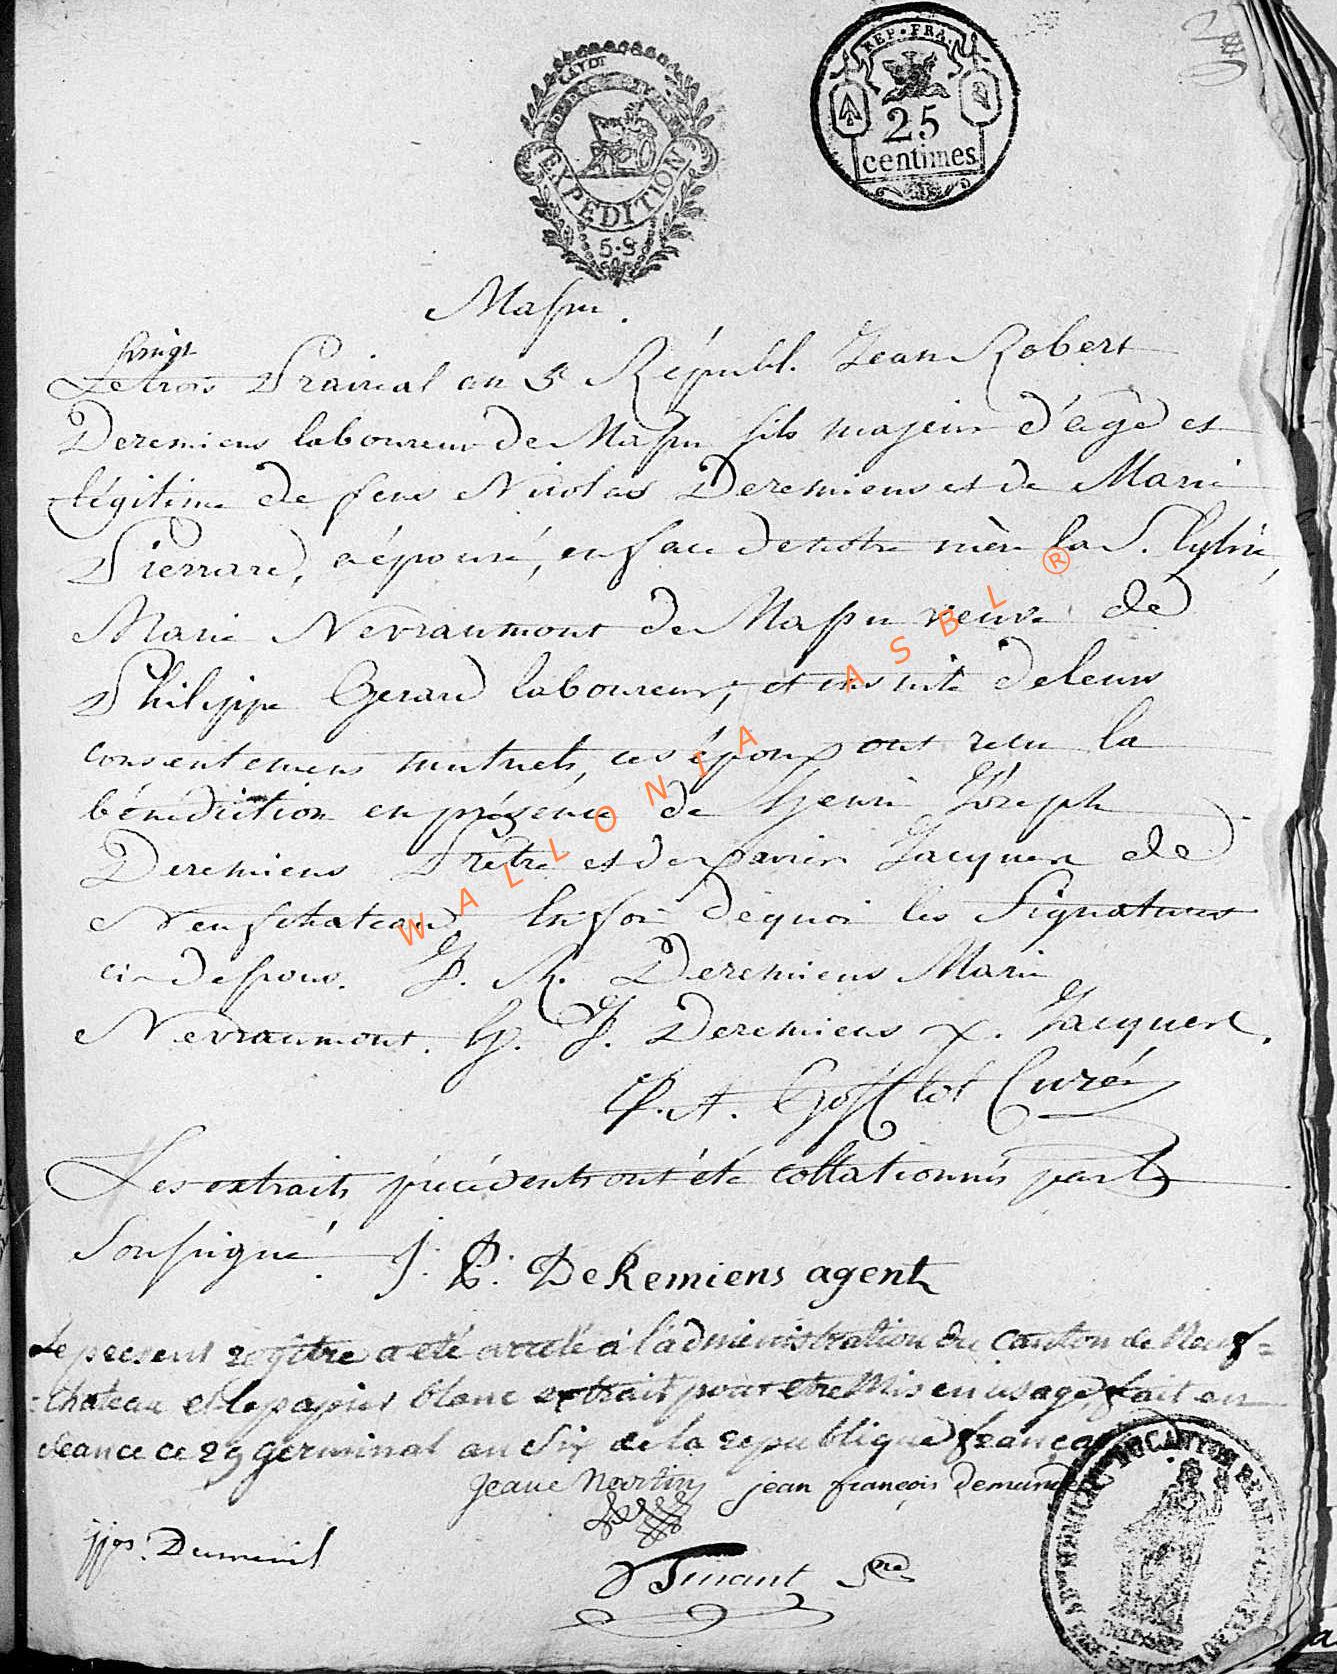 REP. FRA.
25
centimes
EXPEDITION
5.S
Massu.
vingt
Le trois Prairial an 5e Républ. Jean Robert
Deremiens laboureur de Massu fils majeur d'égé et
légitime de feus Nicolas Deremiens et de Marie
Pierrard, a épousé, en face de notre mère la S. Eglise,
Marie Nevraumont de Massu veuve de
Philippe Gerard laboureur, et ensuite de leurs
consentemens mutuels, ces époux ont recu la
bénédiction en présence de Henri Joseph
Deremiens Prêtre et de xavier Jacquen de
Neufchateau. En foi de quoi les Signatures
ci-dessous. J. R. Deremiens Marie
Nevraumont. H. J. Deremiens x. Jacquen.
P. A. Gofflot Curé
Les extraits précédents ont été collationnés par le
Soussigné. J. P. DeRemiens agent
Le present regitre a eté areté a l'administration du Canton de Neuf=
=chateau et le papier blanc extrait pour etre mis en usage, fait en
seance ce 29 germinal an Six de la republique françai
jean françois demande
jjos. Dumenil
Tinant Sre
WALLONIA ASBL ®